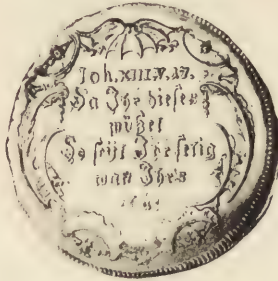 Joh. XIII. V. 17.
So Ihr dieses
wißet
So seijt Ihr selig
wan Ihrs